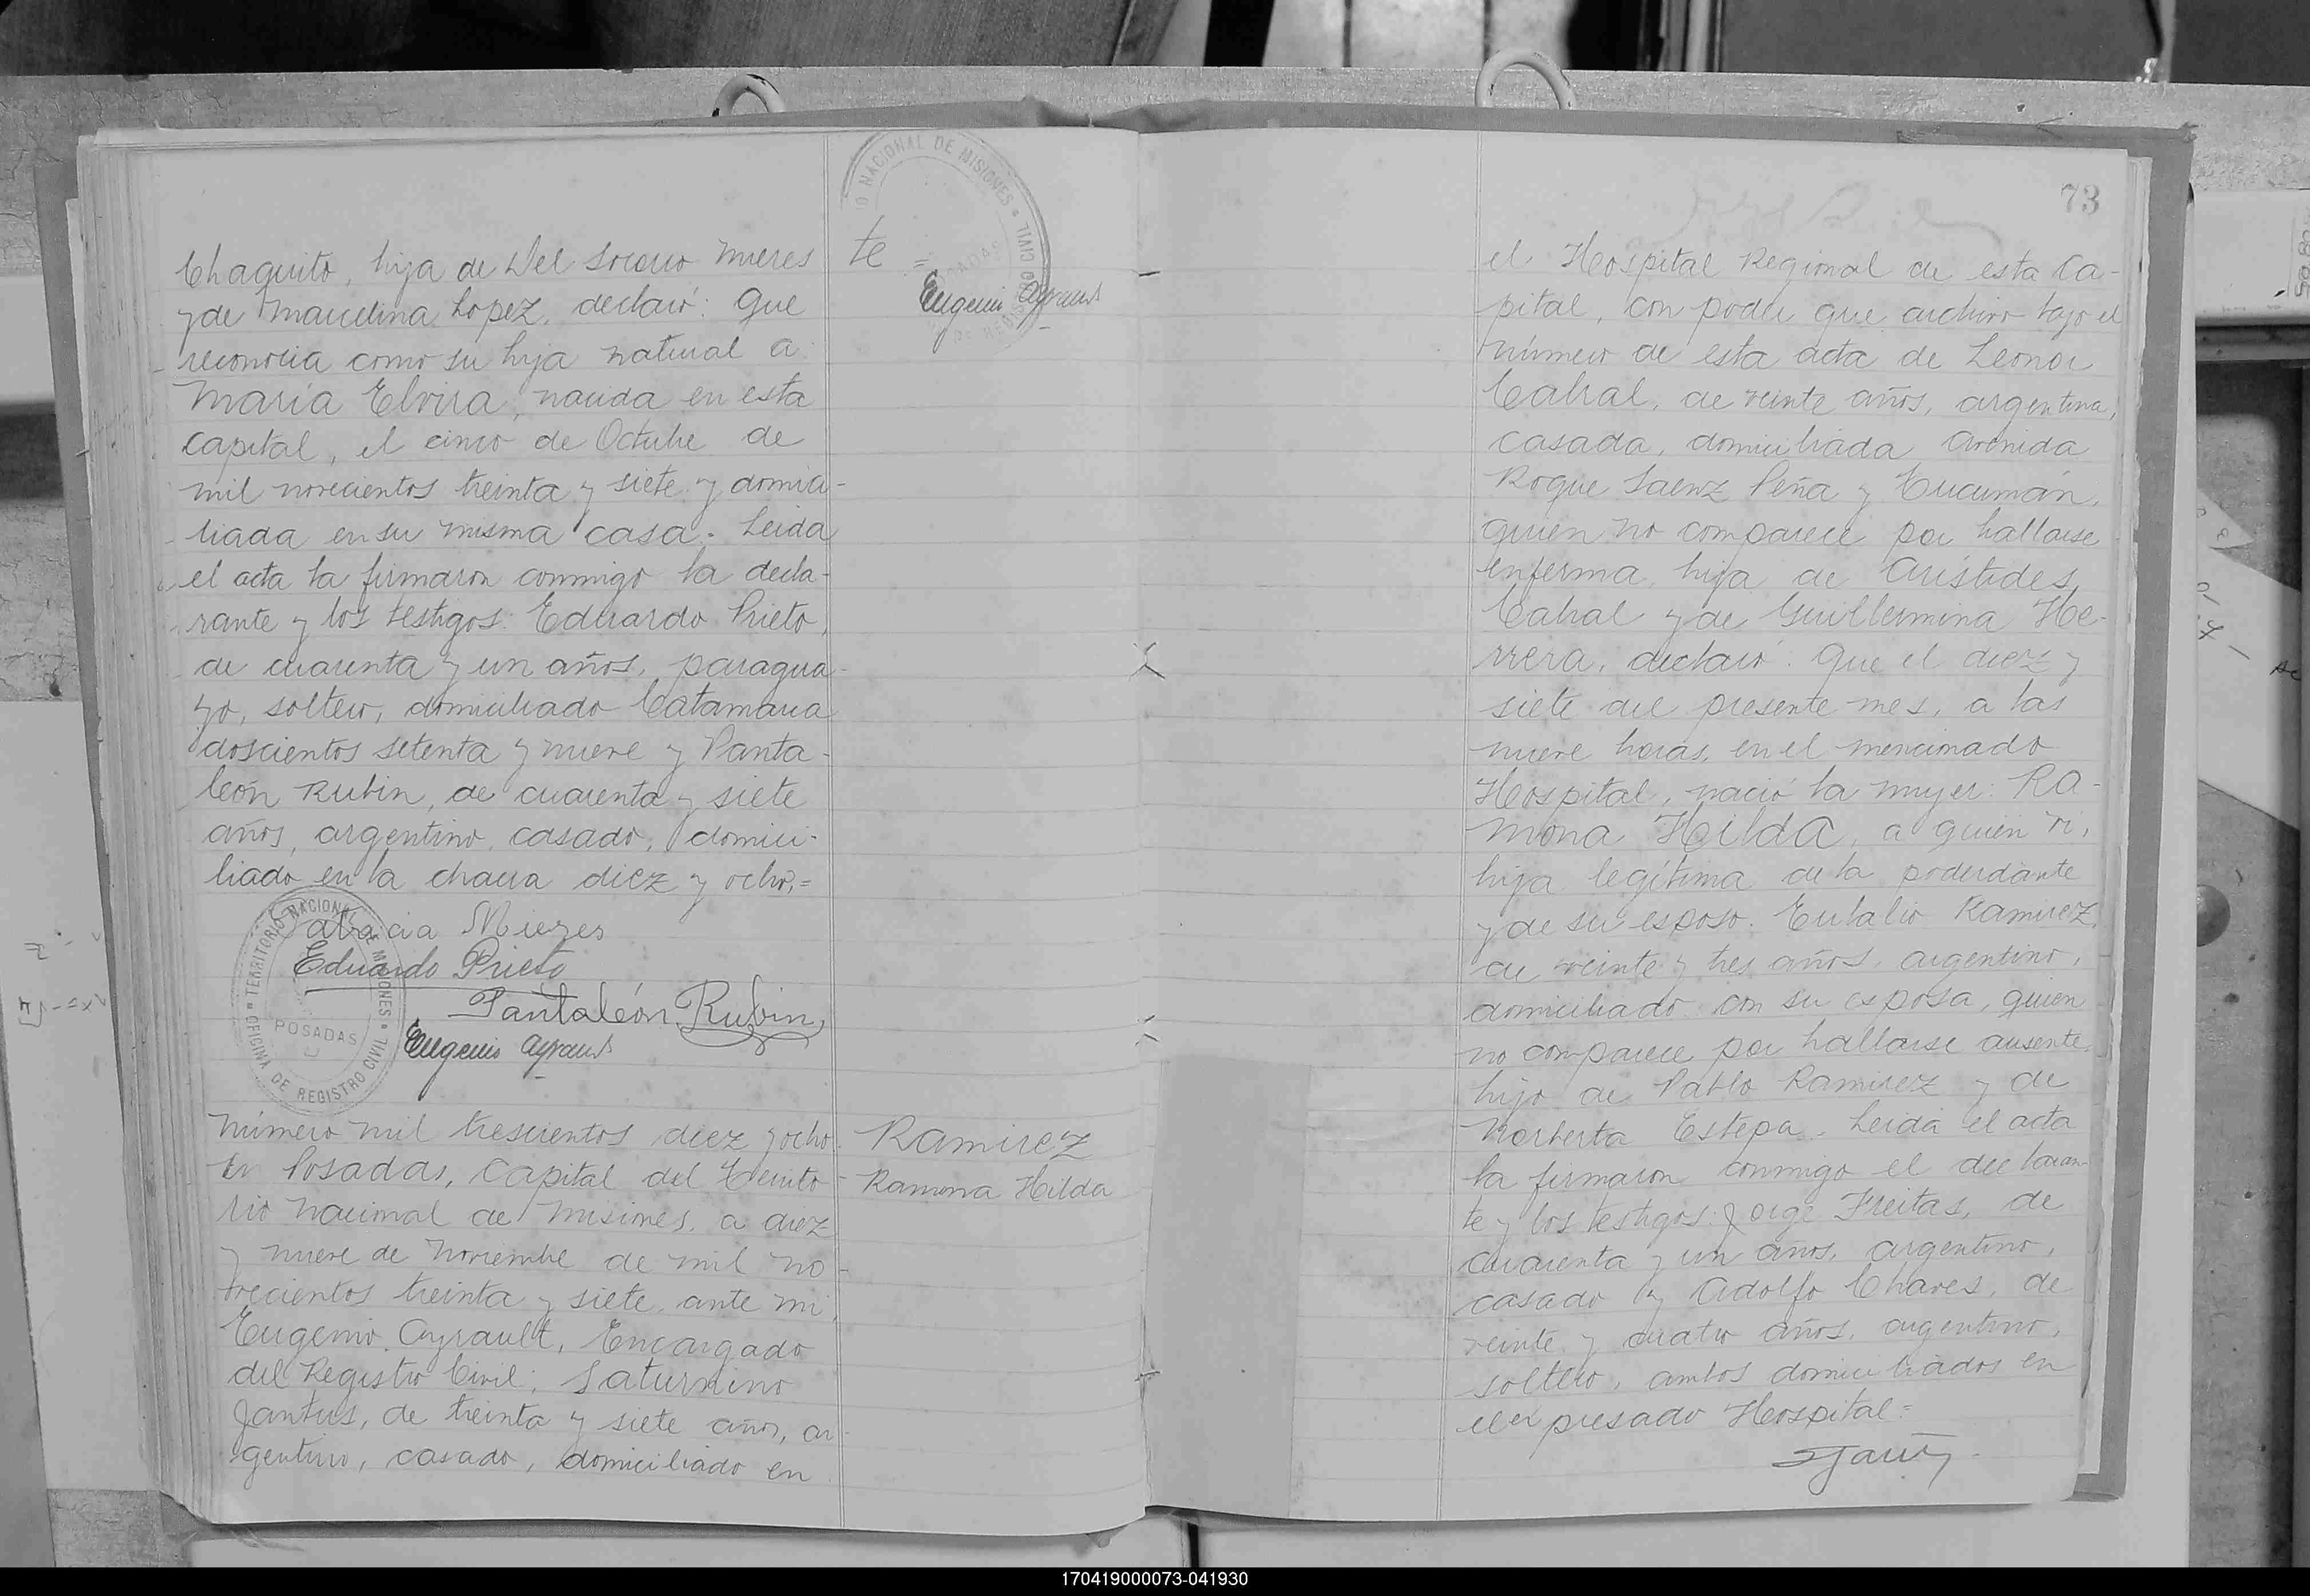 Chaquito, hija de Del Socorro Mieres
y de Marcelina Lopez, declaró: Que
reconocia como su hija natural a
María Elvira, nacida en esta
capital, el cinco de Octubre de
mil novecientos treinta y siete y domici-
liada en su misma casa. Leida
el acta la firmaron conmigo la decla-
rante y los testigos: Eduardo Prieto,
de cuarenta y un años, paragua-
yo, soltero, domiciliado Catamarca
doscientos setenta y nueve y Panta-
león Rubin, de cuarenta y siete
años, argentino, casado, domici-
liado en la chacra diez y ocho.=
Mieres
Eduardo Prieto
Pantaleón Rubin,
Eugenio Ayrault
TERRITORIO NACIONAL DE MISIONES
POSADAS
OFICINA DE REGISTRO CIVIL
Número mil trescientos diez y ocho.
En Posadas, Capital del Territo-
rio Nacional de Misiones, a diez
y nueve de Noviembre de mil no-
vecientos treinta y siete, ante mi,
Eugenio Ayrault, Encargado
del Registro Civil, Saturnino
Jantus, de treinta y siete años, ar-
gentino, casado, domiciliado en
te =
NACIONAL DE MISIONES
CIVIL
Eugenio Ayrault
Ramirez
Ramona Hilda
73
el Hospital Regional de esta Ca-
pital, con poder que archivo bajo el
número de esta acta de Leonor
Cabral, de veinte años, argentina,
casada, domiciliada Avenida
Roque Saenz Peña y Tucumán,
quien no comparece por hallarse
enferma, hija de Arístides
Cabral y de Guillermina He-
rrera, declaró: Que el diez y
siete del presente mes, a las
nueve horas, en el mencionado
Hospital, nació la mujer: Ra-
mona Hilda, a quien vi,
hija legítima de la poderdante
y de su esposo. Eulalio Ramirez,
de veinte y tres años, argentino,
domiciliado con su esposa, quien
no comparece por hallarse ausente,
hijo de Pablo Ramirez y de
Norberta Estepa. Leida el acta
la firmaron conmigo el declaran-
te y los testigos: Jorge Freitas, de
cuarenta y un años, argentino,
casado y Adolfo Chaves, de
veinte y cuatro años, argentino,
soltero, ambos domiciliados en
el expresado Hospital=
170419000073-041930